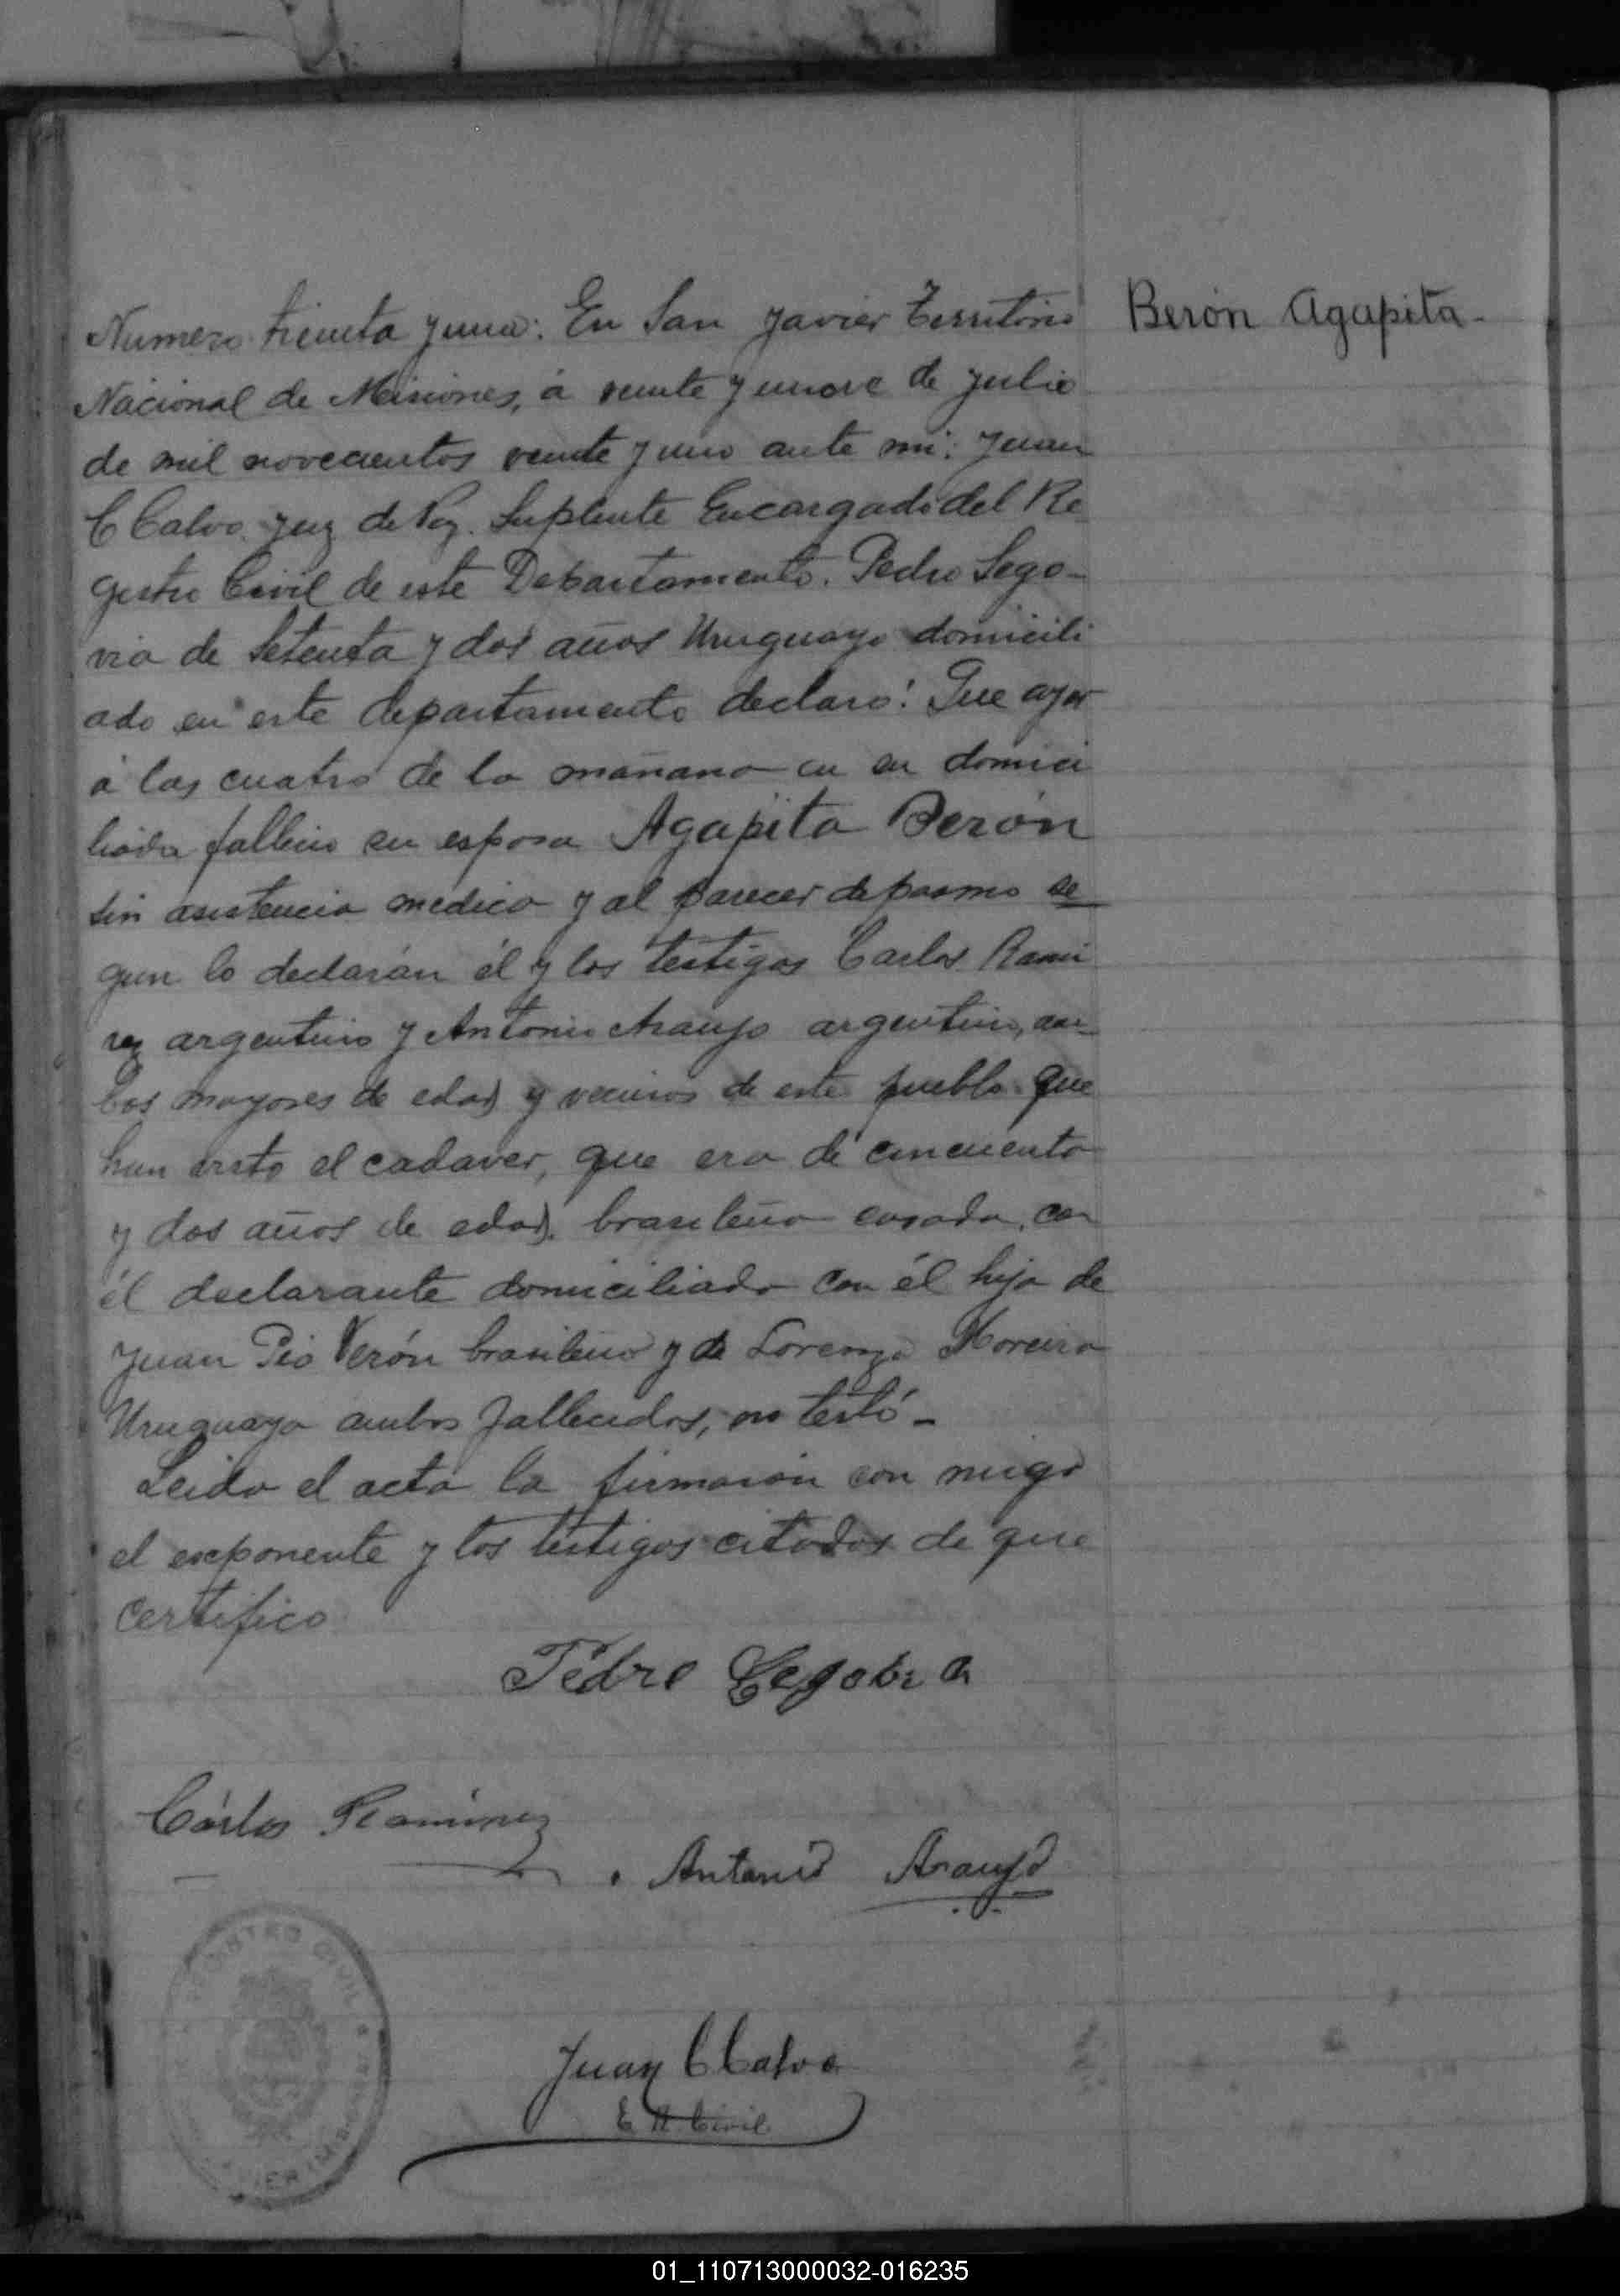 Numero treinta y una: En San Javier Territorio
Nacional de Misiones, á veinte y nueve de Julio
de mil novecientos veinte y uno ante mi: Juan
C Calvo. Juez de Paz. Suplente Encargado del Re
gistro Civil de este Departamento. Pedro Sego-
via de Setenta y dos años Uruguayo domicili
ado en este departamento declaró: Que ayer
á las cuatro de la mañana en su domici
fallecio su esposa Agapita Berón
sin asistencia medica y al parecer de pasmo se
gun lo declarán él y los testigos Carlos Rami
rez argentino y Antonio Araujo argentino, am-
bos mayores de edad y vecinos de este pueblo que
han visto el cadaver, que era de cincuenta
y dos años de edad, brasileña casada, con
él declarante domiciliada con él hija de
Juan Pio Verón brasilero y de Lorenza Moreira
Uruguaya ambos fallecidos, no testó-
Leida el acta la firmarón con migo
el exponente y los testigos citados de que
certifico
Pedro Segobia
Cárlos Ramirez
Antonio Araujo
REGISTRO CIVIL
Juan C Calvo
E. R. Civil
Berón Agapita-
01_110713000032-016235